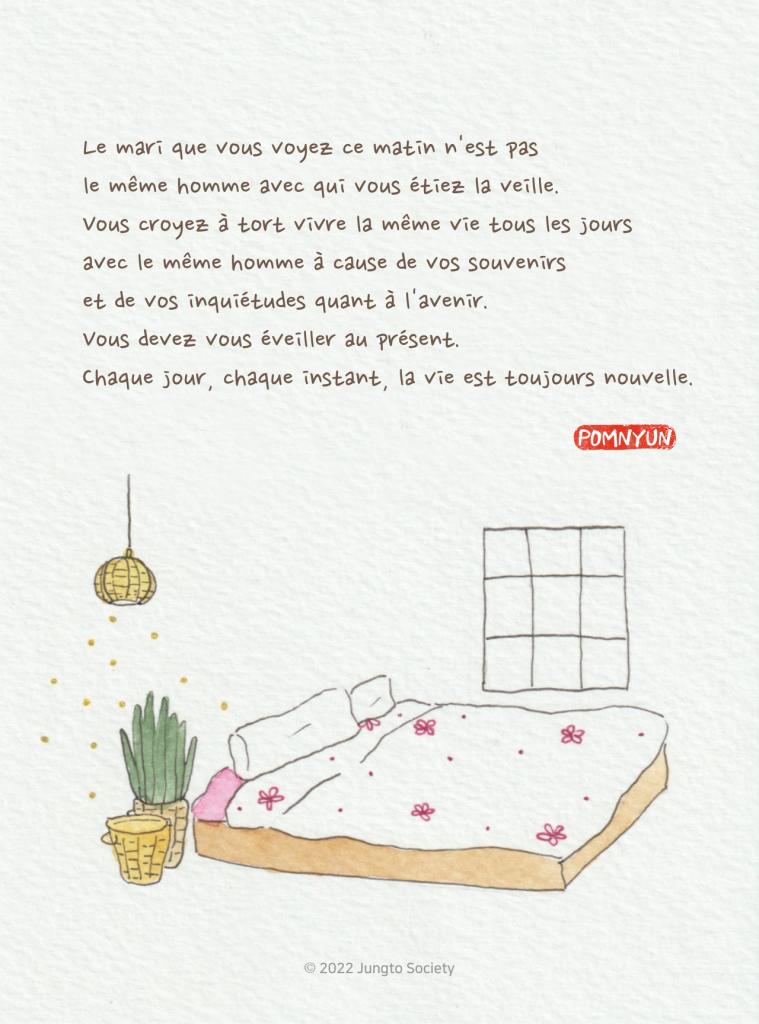 Le mari que vous voyez ce matin n'est pas
le même homme avec qui vous étiez la veille.
Vous croyez à tort vivre la même vie tous les jours
avec le même homme à cause de vos souvenirs
et de vos inquiétudes quant à l'avenir.
Vous devez vous éveiller au présent.
Chaque jour, chaque instant, la vie est toujours nouvelle.
POMNYUN
© 2022 Jungto Society